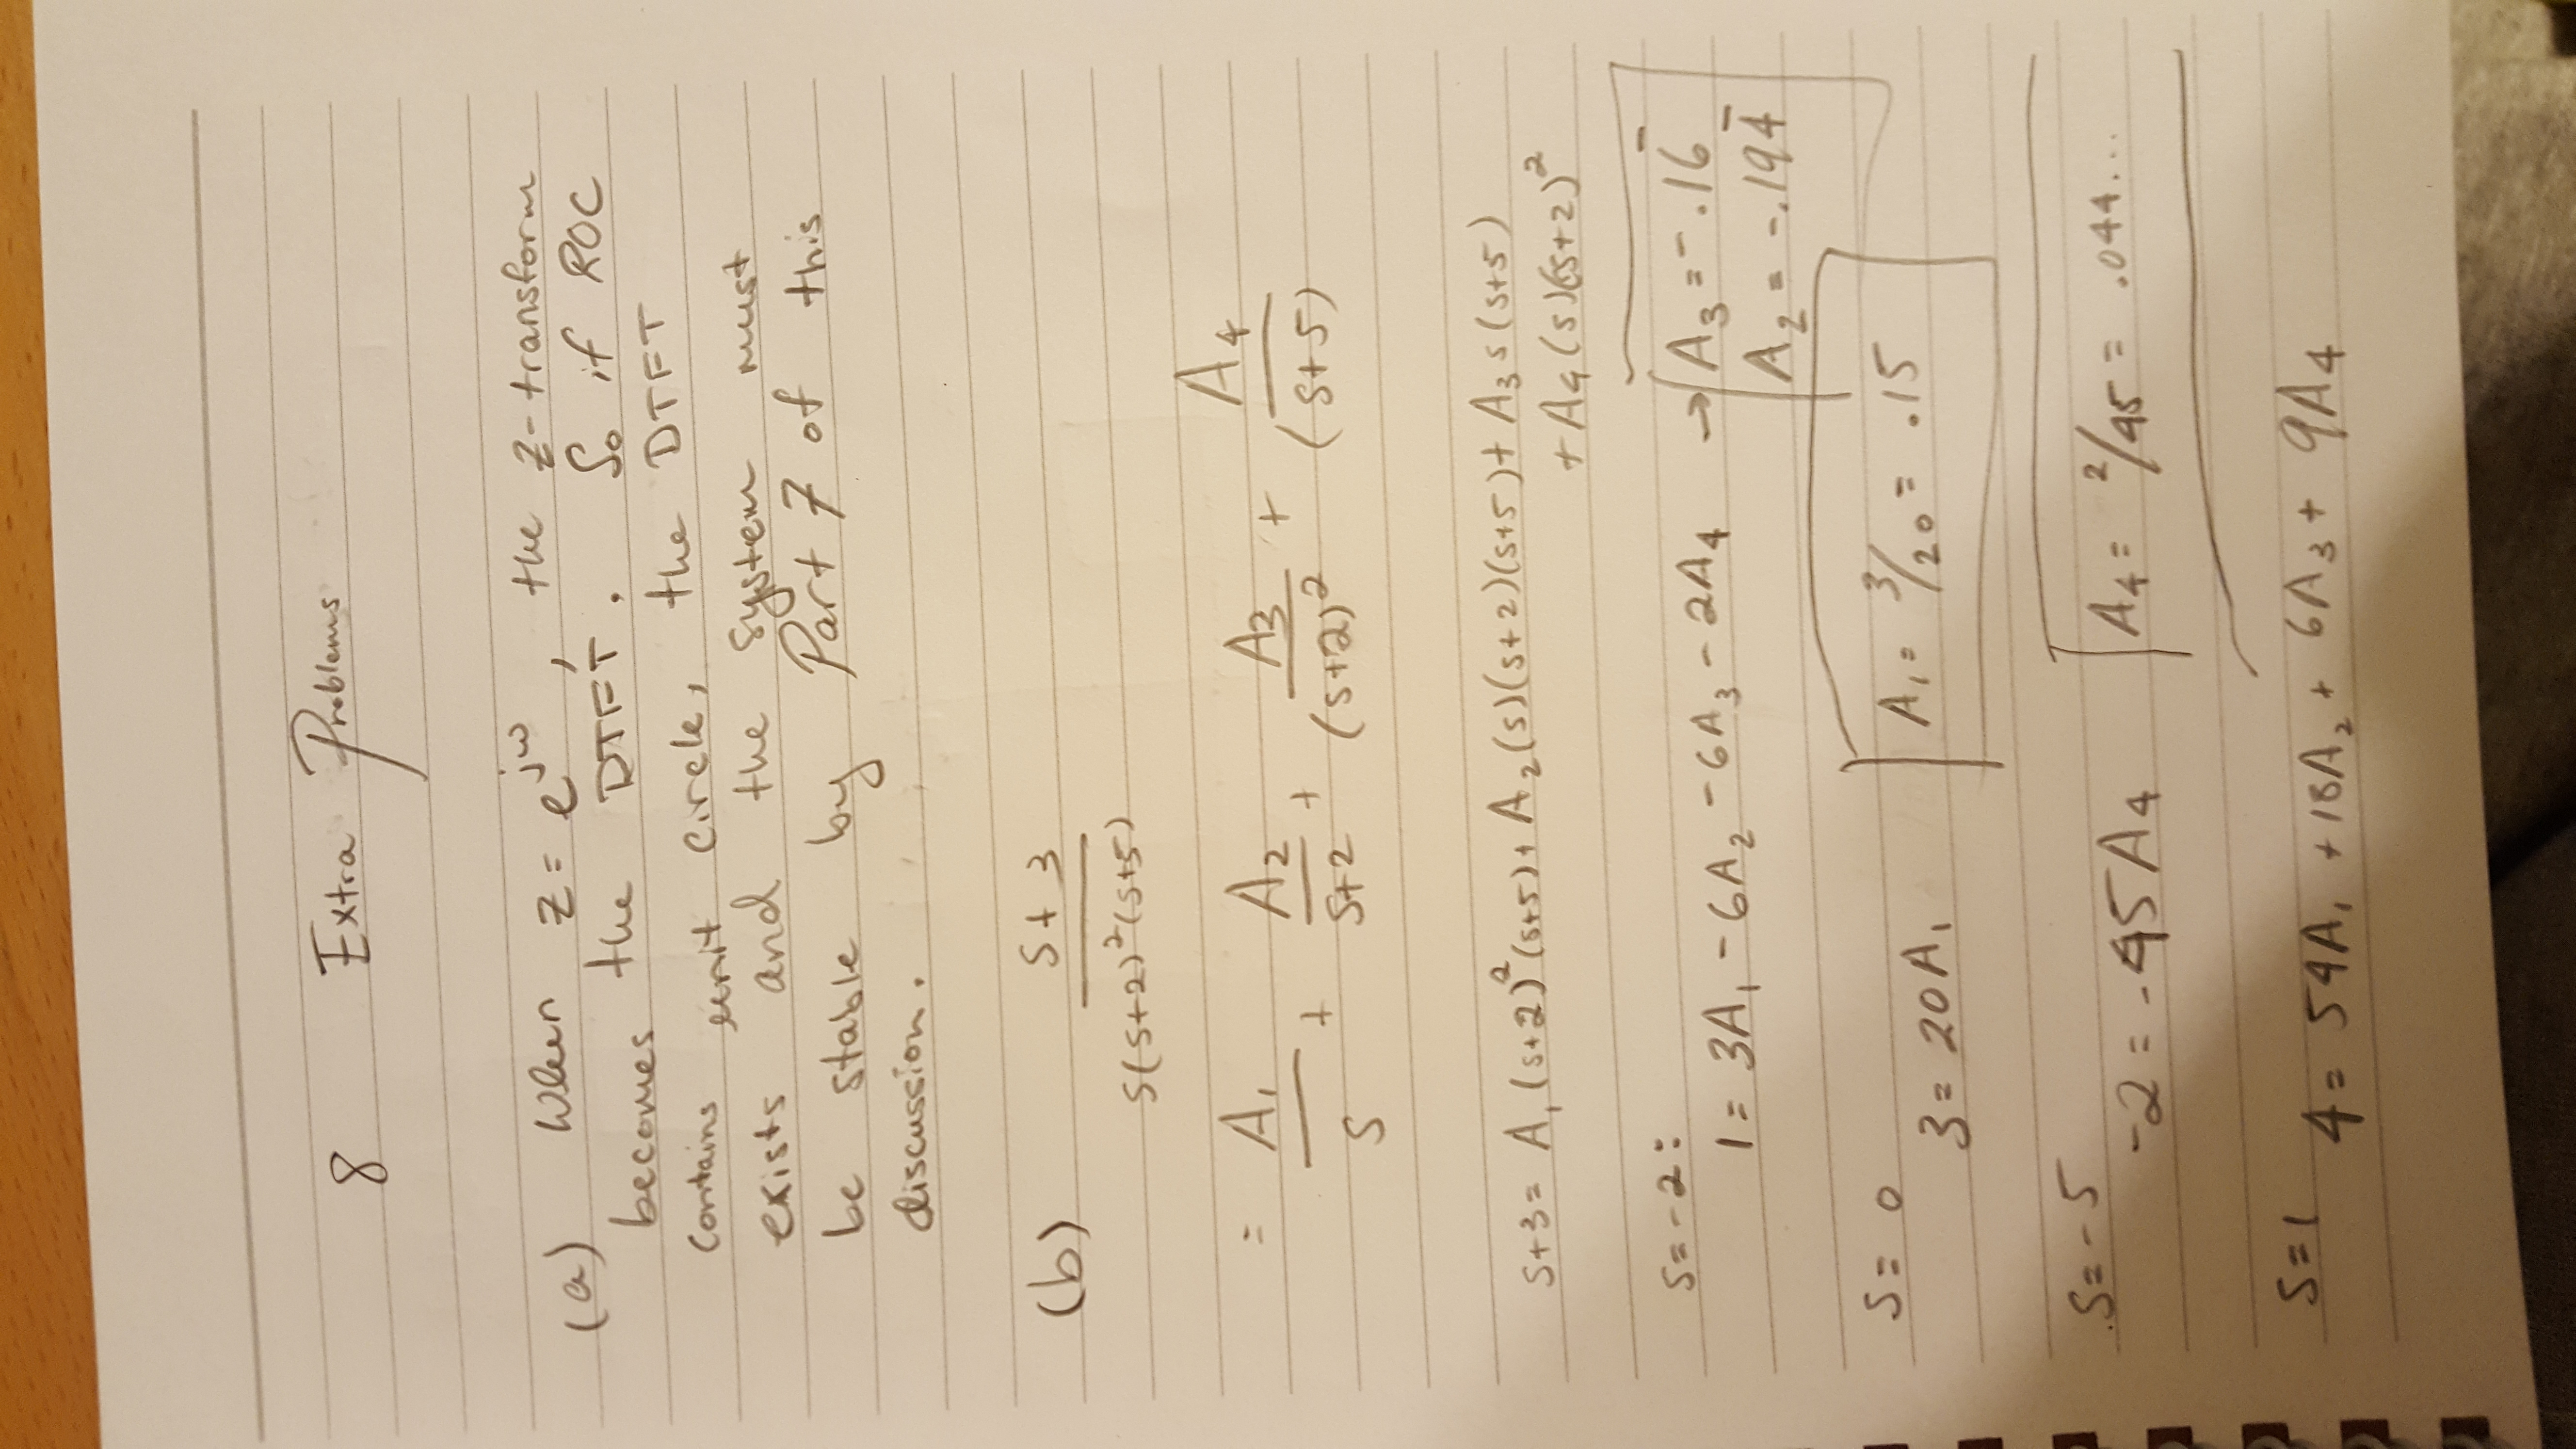 8 Extra Problems
(a) When z = e^jω, the z-transform
becomes the DTFT. So if ROC
contains unit circle, the DTFT
exists and the system must
be stable by Part 7 of this
discussion.
(b) s+3
s(s+2)²(s+5)
= A₁/s + A₂/s+2 + A₃/(s+2)² + A₄/(s+5)
s+3= A₁(s+2)²(s+5)+ A₂(s)(s+2)(s+5)+ A₃s(s+5)
+A₄(s)(s+2)²
s=-2:
1= 3A₁ -6A₂ -6A₃ -2A₄ → A₃ = -.16̄
A₂ = -.194̄
s= 0
3= 20A₁ A₁= 3/20 = .15
s=-5
-2 = -45A₄ A₄= 2/45 = .044...
s=1 4= 54A₁ +18A₂ + 6A₃ + 9A₄